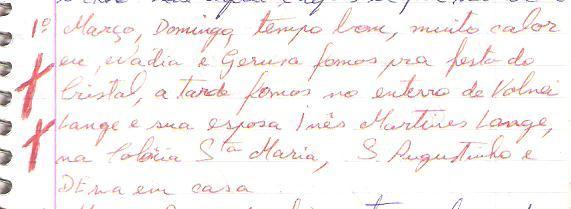 1º Março, Domingo tempo bom, muito calor
eu, Nádia e Gerusa fomos pra festa do
Cristal, a tarde fomos no enterro de Volnei
Lange e sua esposa Inês Martines Lange,
na Colônia Sta Maria, S. Augustinho e
DEna em casa